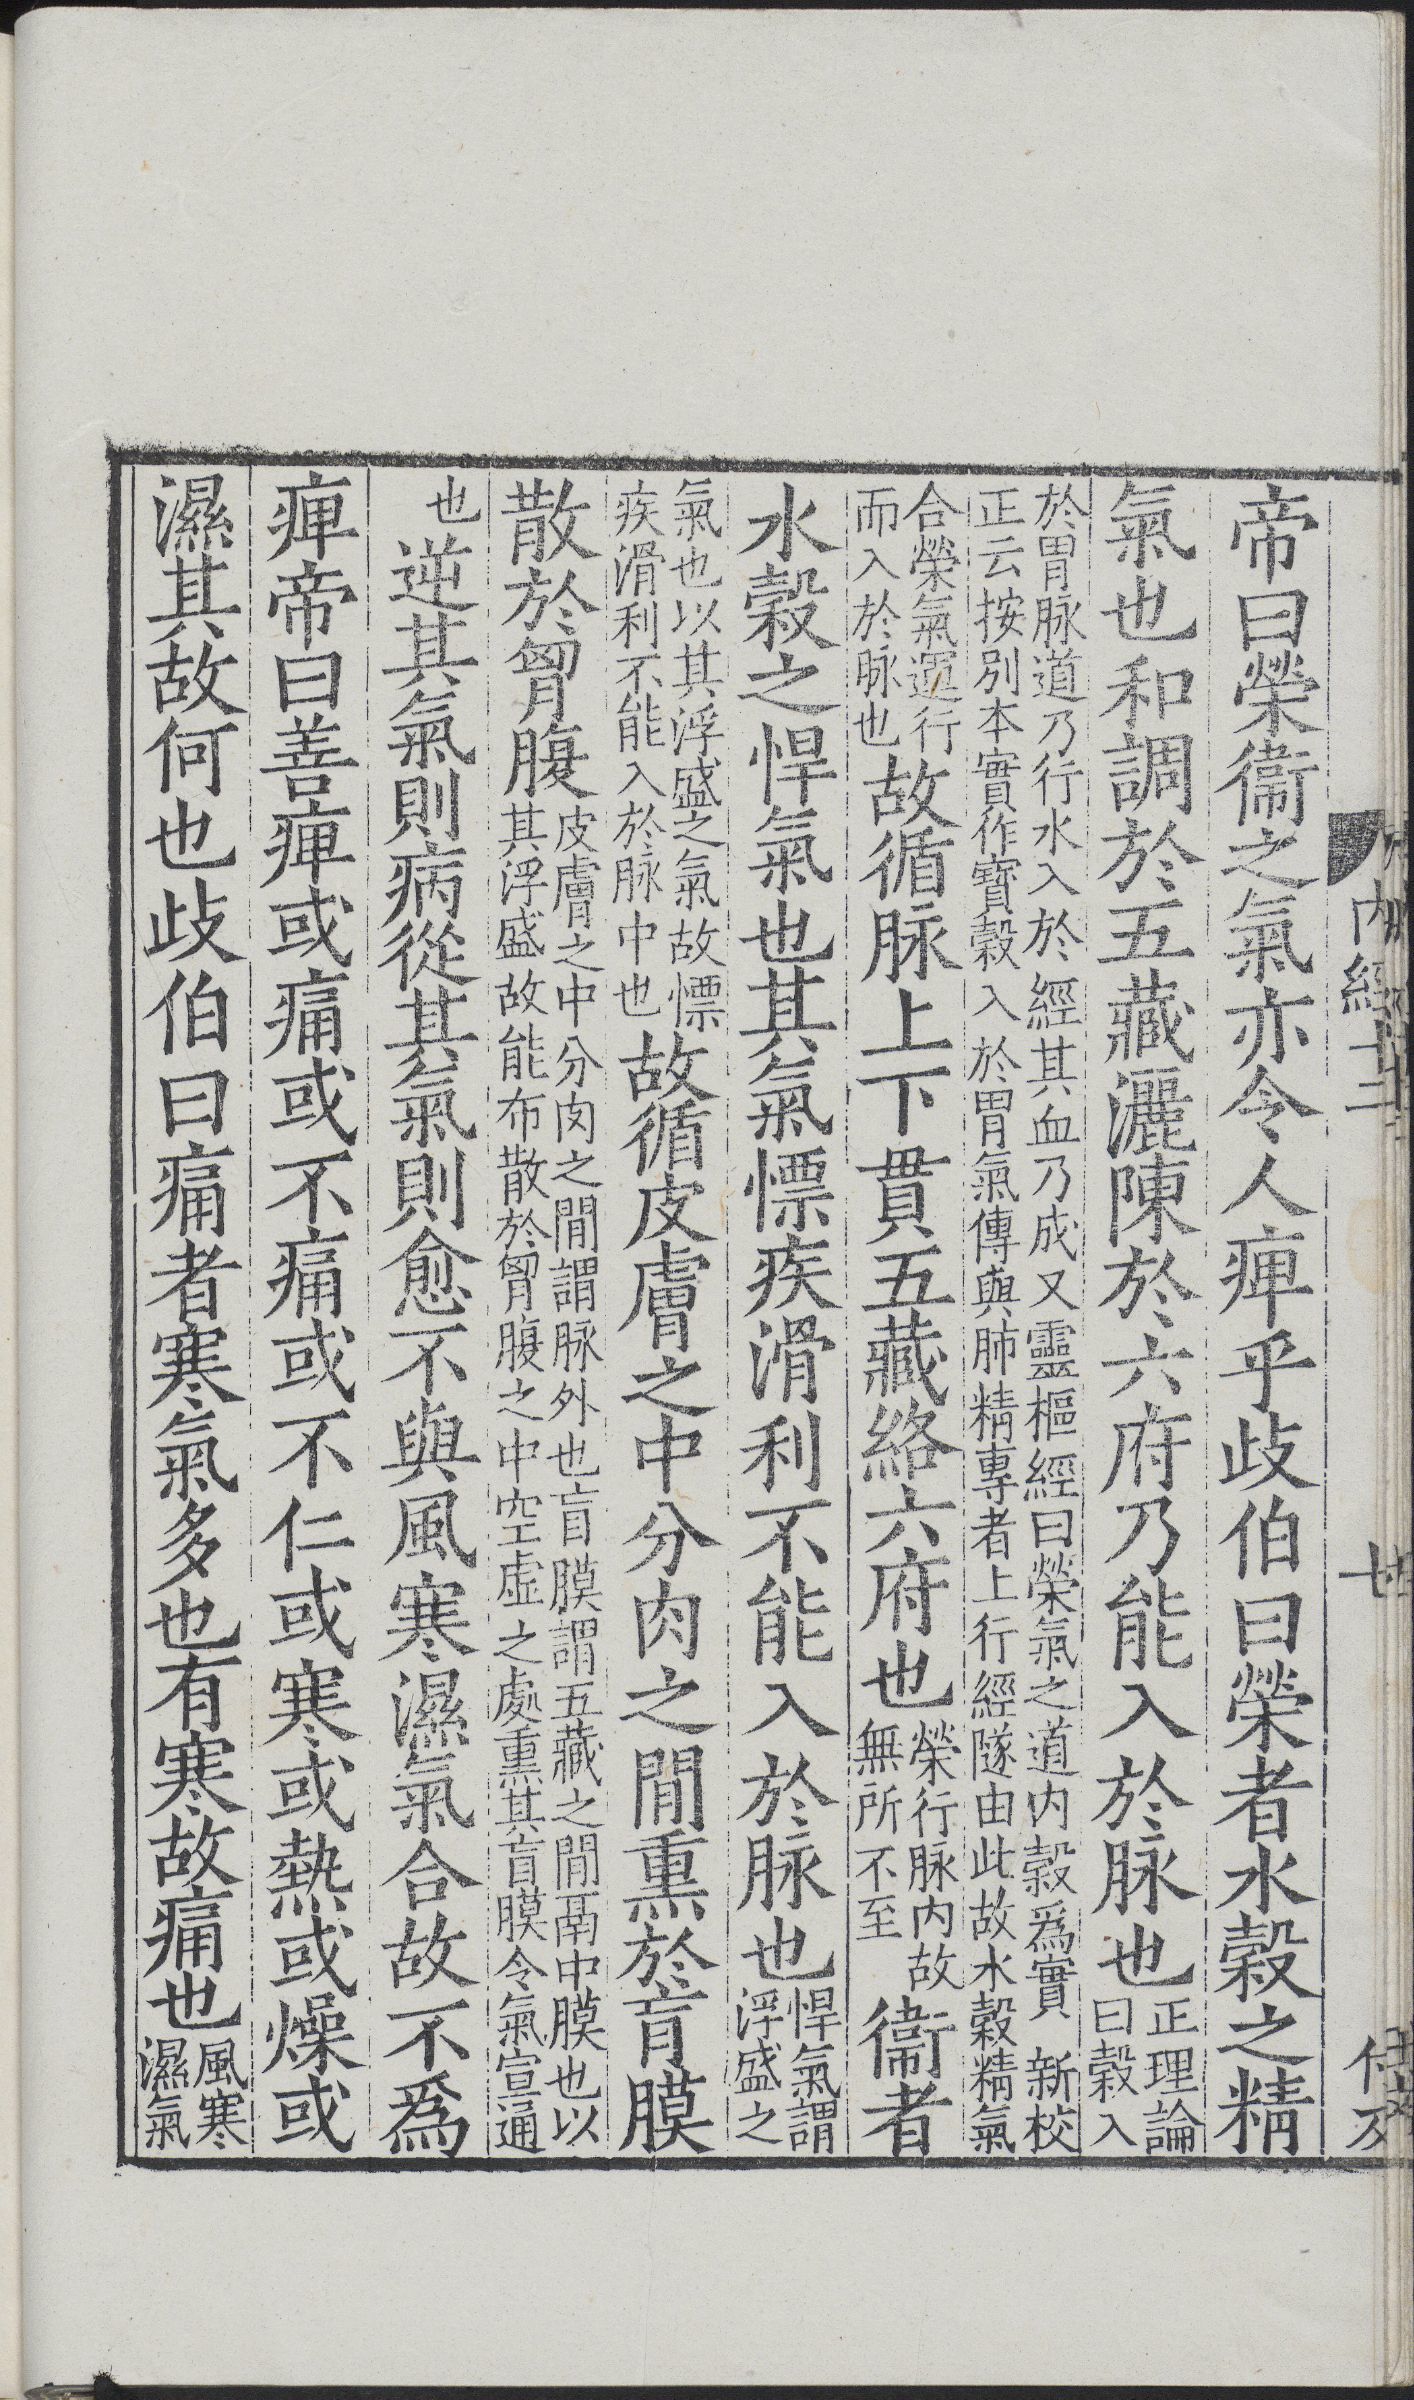 帝曰榮衞之氣亦令人痺乎歧伯曰榮者水穀之精
氣也和調於五藏灑陳於六府乃能入於脉也正理論曰穀入
於胃脉道乃行水入於經其血乃成又靈樞經曰榮氣之道内穀爲實 新校
正云按別本實作寶穀入於胃氣傳與肺精專者上行經隧由此故水穀精氣
合榮氣運行而入於脉也故循脉上下貫五藏絡六府也榮行脉内故無所不至衞者
水穀之悍氣也其氣慓疾滑利不能入於脉也悍氣謂浮盛之
氣也以其浮盛之氣故慓疾滑利不能入於脉中也故循皮膚之中分肉之閒熏於肓膜
散於胷腹皮膚之中分肉之閒謂脉外也肓膜謂五藏之閒鬲中膜也以其浮盛故能布散於胷腹之中空虛之處熏其肓膜令氣宣通
也逆其氣則病從其氣則愈不與風寒濕氣合故不爲
痺帝曰善痺或痛或不痛或不仁或寒或熱或燥或
濕其故何也歧伯曰痛者寒氣多也有寒故痛也風寒濕氣
内經十二